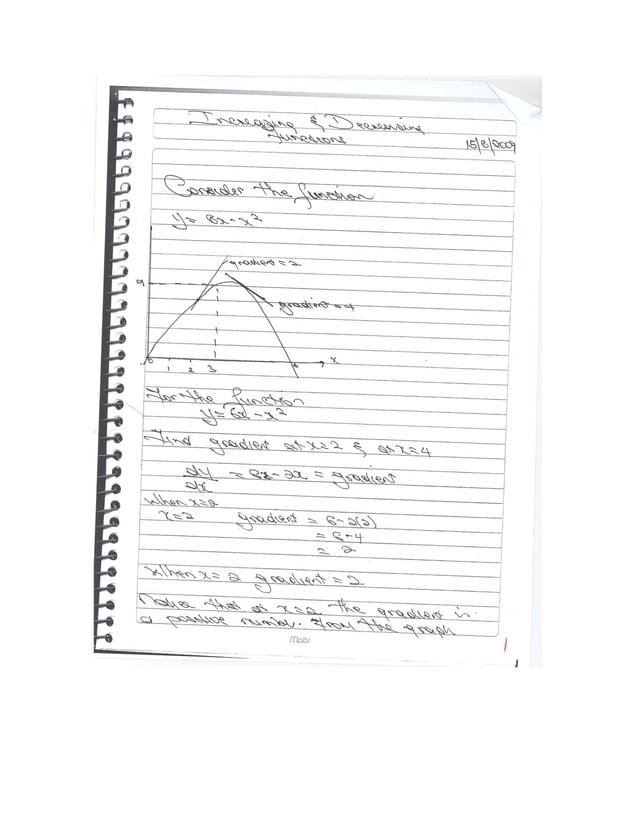 Increasing & Decreasing
functions
15/8/2009
Consider the function
y = 6x - x²
gradient = 2
9
gradient = 4
0 1 2 3 6 x
For the function
y = 6x - x²
Find gradient at x = 2 & at x = 4
dy/dx = 6x - 2x = gradient
When x = 2
x = 2 gradient = 6 - 2(2)
= 6 - 4
= 2
When x = 2 gradient = 2
Notice that at x = 2 the gradient is
a positive number. From the graph
Maitr
1